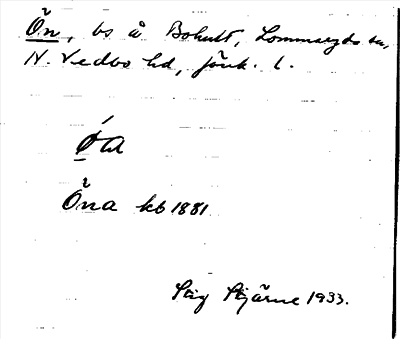 Ön, bs å Bohult, Lommaryds sn,
N. Vedbo hd, Jönk. l.
ǿa
Öna kb 1881
Stig Stjärne 1933.